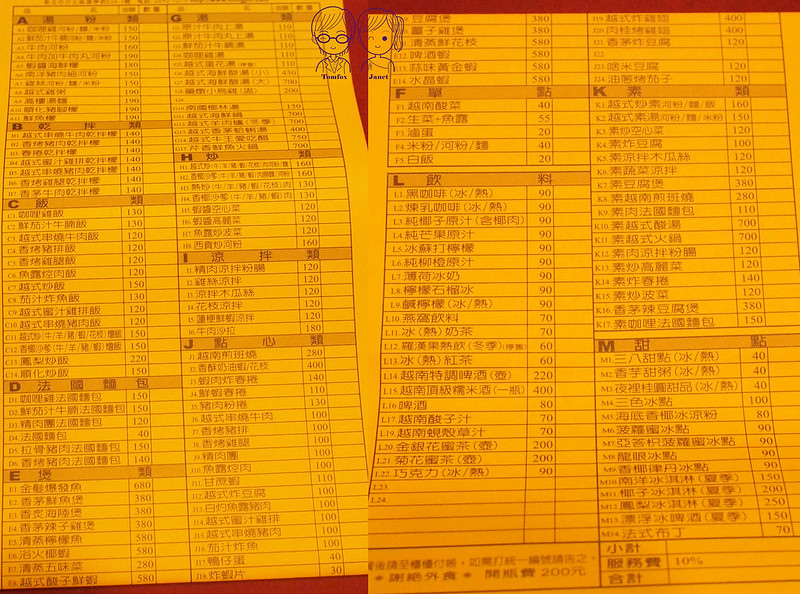 A 湯粉類
A1 咖哩雞河粉/麵/米粉 150
A3 牛肉河粉 160
A4 牛肉加牛肉丸河粉
A5 蝦醬海鮮檬
A6 南洋豬肉細河粉
A8 越式雞粥 150
A9 高樓湯麵
A10 順化豬腳檬
A11 鮮魚檬 190
B 乾拌類
B1 越式串燒牛肉乾拌檬 140
B2 香烤豬肉乾拌檬 140
B3 春捲乾拌檬 140
B4 越式蜜汁雞排乾拌檬 140
B5 越式串燒豬肉乾拌檬 140
B6 香烤雞腿乾拌檬
B7 香茅牛肉乾拌檬 150
C 飯類
C1 咖哩雞飯 130
C2 鮮茄汁牛腩飯 130
C3 越式串燒牛肉飯 120
C4 香烤豬排飯 120
C5 香烤雞腿飯 120
C6 魚露焢肉飯 120
C7 越式炒飯 150
C8 茄汁炸魚飯 130
C9 越式蜜汁雞排飯 120
C10 越式串燒豬肉飯 120
C11 越式炒(牛/羊/豬/蝦/花)燴飯 150
C12 香椰沙爹(牛/羊/豬/蝦)燴飯 150
C13 鳳梨炒飯 220
C14 順化炒飯 150
D 法國麵包
D1 咖哩雞法國麵包 150
D2 鮮茄汁牛腩法國麵包 150
D3 精肉團法國麵包 120
D4 法國麵包 40
D5 拉骨豬肉法國麵包 150
D6 香烤豬肉法國麵包 140
E 煲類
E1 金髮爆發魚 680
E2 香茅鮮魚煲 380
E3 香炙海陸煲 580
E4 香茅辣子雞煲 380
E5 清蒸檸檬魚 580
E6 浴火椰蝦 580
E7 清蒸五味菜 380
E8 越式酸子鮮蝦 580
G 湯類
G1 原汁牛肉上湯 110
G2 原汁牛肉丸上湯 110
G3 鮮茄汁牛腩湯 110
G4 咖哩雞湯 110
G6 越式海鮮酸湯(小) 450
G7 越式海鮮酸湯(大) 700
G8 藥燉小烏雞(盅) 200
G10 南國椰林湯 150
G11 越式海鮮鍋 700
G12 越式羊肉爐(冬季) 700
G13 越式香茅蛤蜊湯 400
G14 越式牛王愛吃醋 750
G15 芹香鮮魚火鍋 700
H 炒類
H1 越式炒(牛/羊/豬/蝦/花枝)河粉/麵 160
H3 熱炒(牛/羊/豬/蝦/花枝)肉 130
H4 香椰沙爹(牛/羊/豬/蝦)肉 130
H5 蝦醬空心菜 120
H6 蝦醬高麗菜 120
H7 魚露炒菠菜 120
H8 西貢炒河粉 160
I 涼拌類
I1 精肉涼拌粉腸 120
I2 雞絲涼拌 120
I3 涼拌木瓜絲 120
I4 花枝涼拌 120
I5 蓮梗鮮蝦涼拌 120
I6 牛肉沙拉 180
J 點心類
J1 越南煎班燒 280
J2 香酥奶油蝦/花枝 400
J3 蝦肉炸春捲 140
J4 鮮蝦春捲 110
J5 豬肉粉捲 130
J6 越式串燒牛肉 100
J7 香烤豬排 100
J8 香烤雞腿 100
J9 精肉團 100
J10 魚露焢肉 100
J11 甘蔗蝦 110
J12 越式炸豆腐 100
J13 白灼魚露豬肉 100
J14 越式蜜汁雞排 100
J15 越式串燒豬肉 100
J16 茄汁炸魚 100
J17 鴨仔蛋 40
J18 炸蝦片 30
Tomfox
Janet
豆腐煲 380
薑子雞煲 380
E11 清蒸鮮花枝 580
E12 啤酒蝦 580
E13 蒜味黃金蝦 580
E14 水晶蝦 580
F 單點
F1 越南酸菜 40
F2 生菜+魚露 55
F3 滷蛋 20
F4 米粉/河粉/麵 40
F5 白飯 20
L 飲料
L1 黑咖啡(冰/熱) 90
L2 煉乳咖啡(冰/熱) 90
L3 純椰子原汁(含椰肉) 90
L4 純芒果原汁 90
L5 冰蘇打檸檬 90
L6 純柳橙原汁 90
L7 薄荷冰奶 90
L8 檸檬石榴冰 90
L9 鹹檸檬(冰/熱) 90
L10 燕窩飲料 70
L11 冰(熱)奶茶 70
L12 羅漢果熱飲(冬季)(停售) 60
L13 冰(熱)紅茶 60
L14 越南特調啤酒(壺) 220
L15 越南頂級糯米酒(一瓶) 400
L16 啤酒 80
L17 越南酸子汁 70
L19 越南蜆殼草汁 70
L20 金銀花蜜茶(壺) 200
L21 菊花蜜茶(壺) 200
L22 巧克力(冰/熱) 90
L23
L24
J19 越式炸雞翅 100
J20 肉桂烤雞翅 100
J21 香茅炸豆腐 120
J23 啥米豆腐 120
J24 油蔥烤茄子 120
K 素類
K1 越式炒素河粉/麵/飯 160
K2 越式素湯河粉/麵/米粉 150
K3 素炒空心菜 120
K4 素炸豆腐 100
K5 素涼拌木瓜絲 120
K6 素蔬菜涼拌 120
K7 素豆腐煲 380
K8 素越南煎班燒 280
K9 素肉法國麵包 110
K10 素越式酸湯 700
K11 素越式火鍋 700
K12 素肉涼拌粉腸 120
K13 素炒高麗菜 120
K14 素炸春捲 140
K15 素炒菠菜 120
K16 香茅辣豆腐煲 380
K17 素咖哩法國麵包 150
M 甜點
M1 三八甜點(冰/熱) 40
M2 香芋甜粥(冰/熱) 40
M3 夜裡桂圓甜品(冰/熱) 40
M4 三色冰點 100
M5 海底香椰冰涼粉 80
M6 菠蘿蜜冰點 90
M7 亞答枳菠蘿蜜冰點 90
M8 龍眼冰點 90
M9 香椰律丹冰點 90
M10 南洋冰淇淋(夏季) 150
M11 椰子冰淇淋(夏季) 200
M12 鳳梨冰淇淋(夏季) 250
M13 漂浮冰啤酒(夏季) 150
M14 法式布丁 70
小計
服務費 10%
合計
後請至櫃檯付帳，如需打統一編號請告之。
*謝絕外食* 開瓶費200元